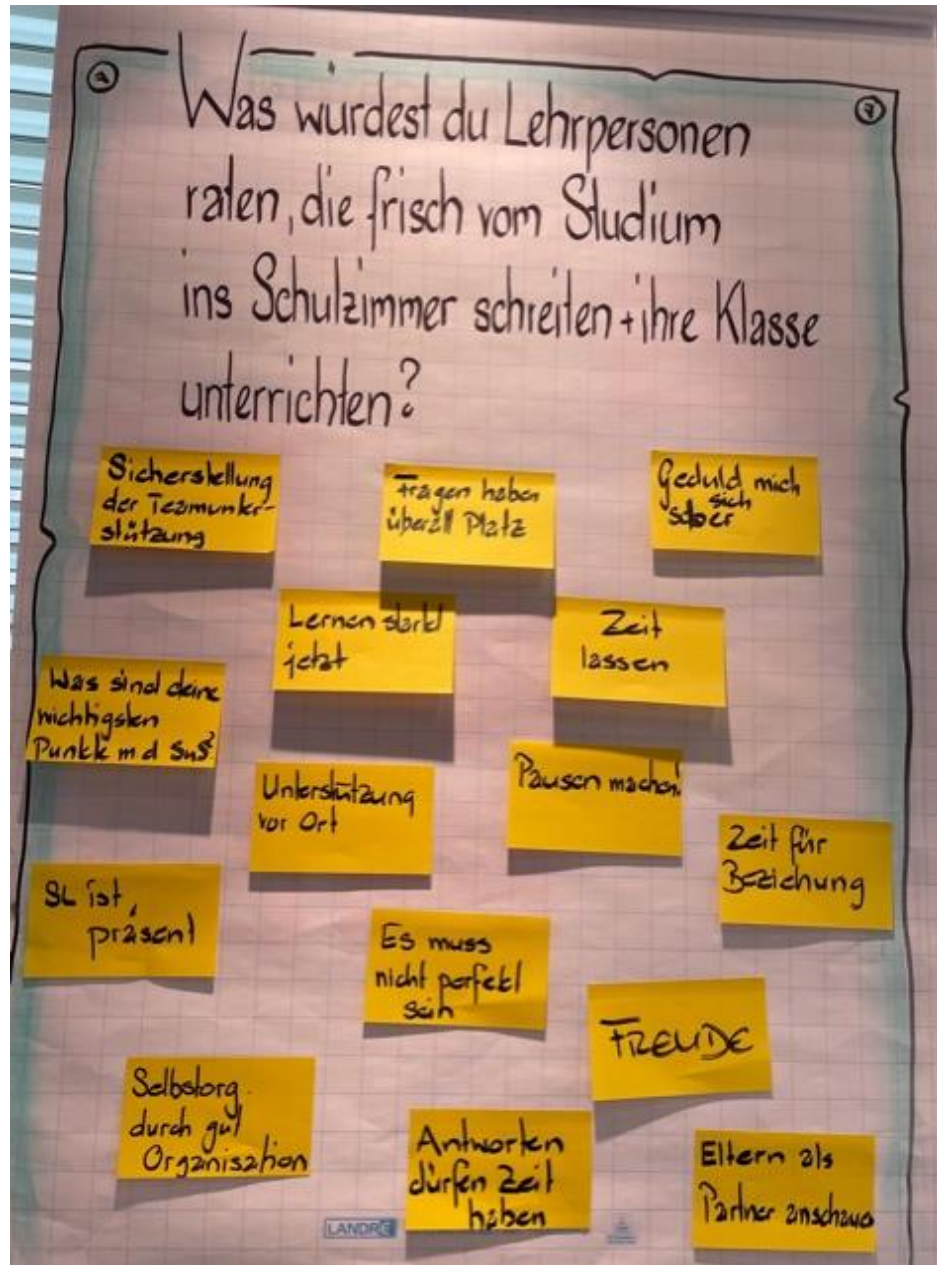 Was würdest du Lehrpersonen
raten, die frisch vom Studium
ins Schulzimmer schreiten + ihre Klasse
unterrichten?
Sicherstellung
der Teamunter-
stützung
Fragen haben
überall Platz
Geduld mich
sich
selber
Lernen startet
jetzt
Zeit
lassen
Was sind deine
wichtigsten
Punkte m d SuS?
Unterstützung
vor Ort
Pausen machen!
Zeit für
Beziehung
SL ist
präsent
Es muss
nicht perfekt
sein
FREUDE
Selbstorg.
durch gut
Organisation
Antworten
dürfen Zeit
haben
Eltern als
Partner anschauen
LANDRÉ